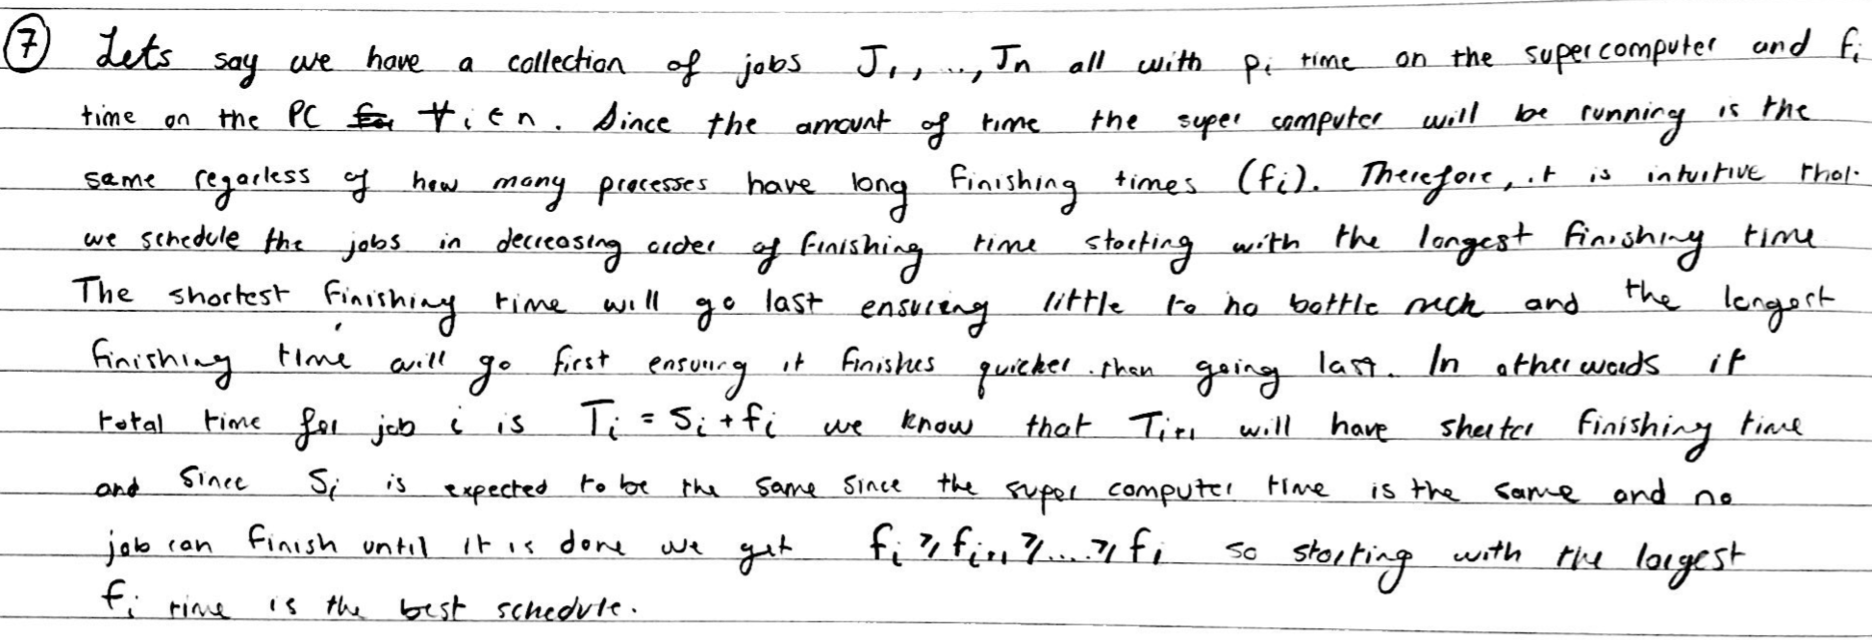 7 Lets say we have a collection of jobs J1, ..., Jn all with pi time on the supercomputer and fi
time on the PC ∀ i ∈ n. Since the amount of time the super computer will be running is the
same regarless of how many processes have long finishing times (fi). Therefore, it is intuitive that
we schedule the jobs in decreasing order of finishing time starting with the longest finishing time
The shortest finishing time will go last ensuring little to no bottle neck and the longest
finishing time will go first ensuring it finishes quicker than going last. In other words if
total time for job i is Ti = Si + fi we know that Ti+1 will have shorter finishing time
and since Si is expected to be the same since the super computer time is the same and no
job can finish until it is done we get fi ≥ fi+1 ≥ ... ≥ fi so starting with the largest
fi time is the best schedule.